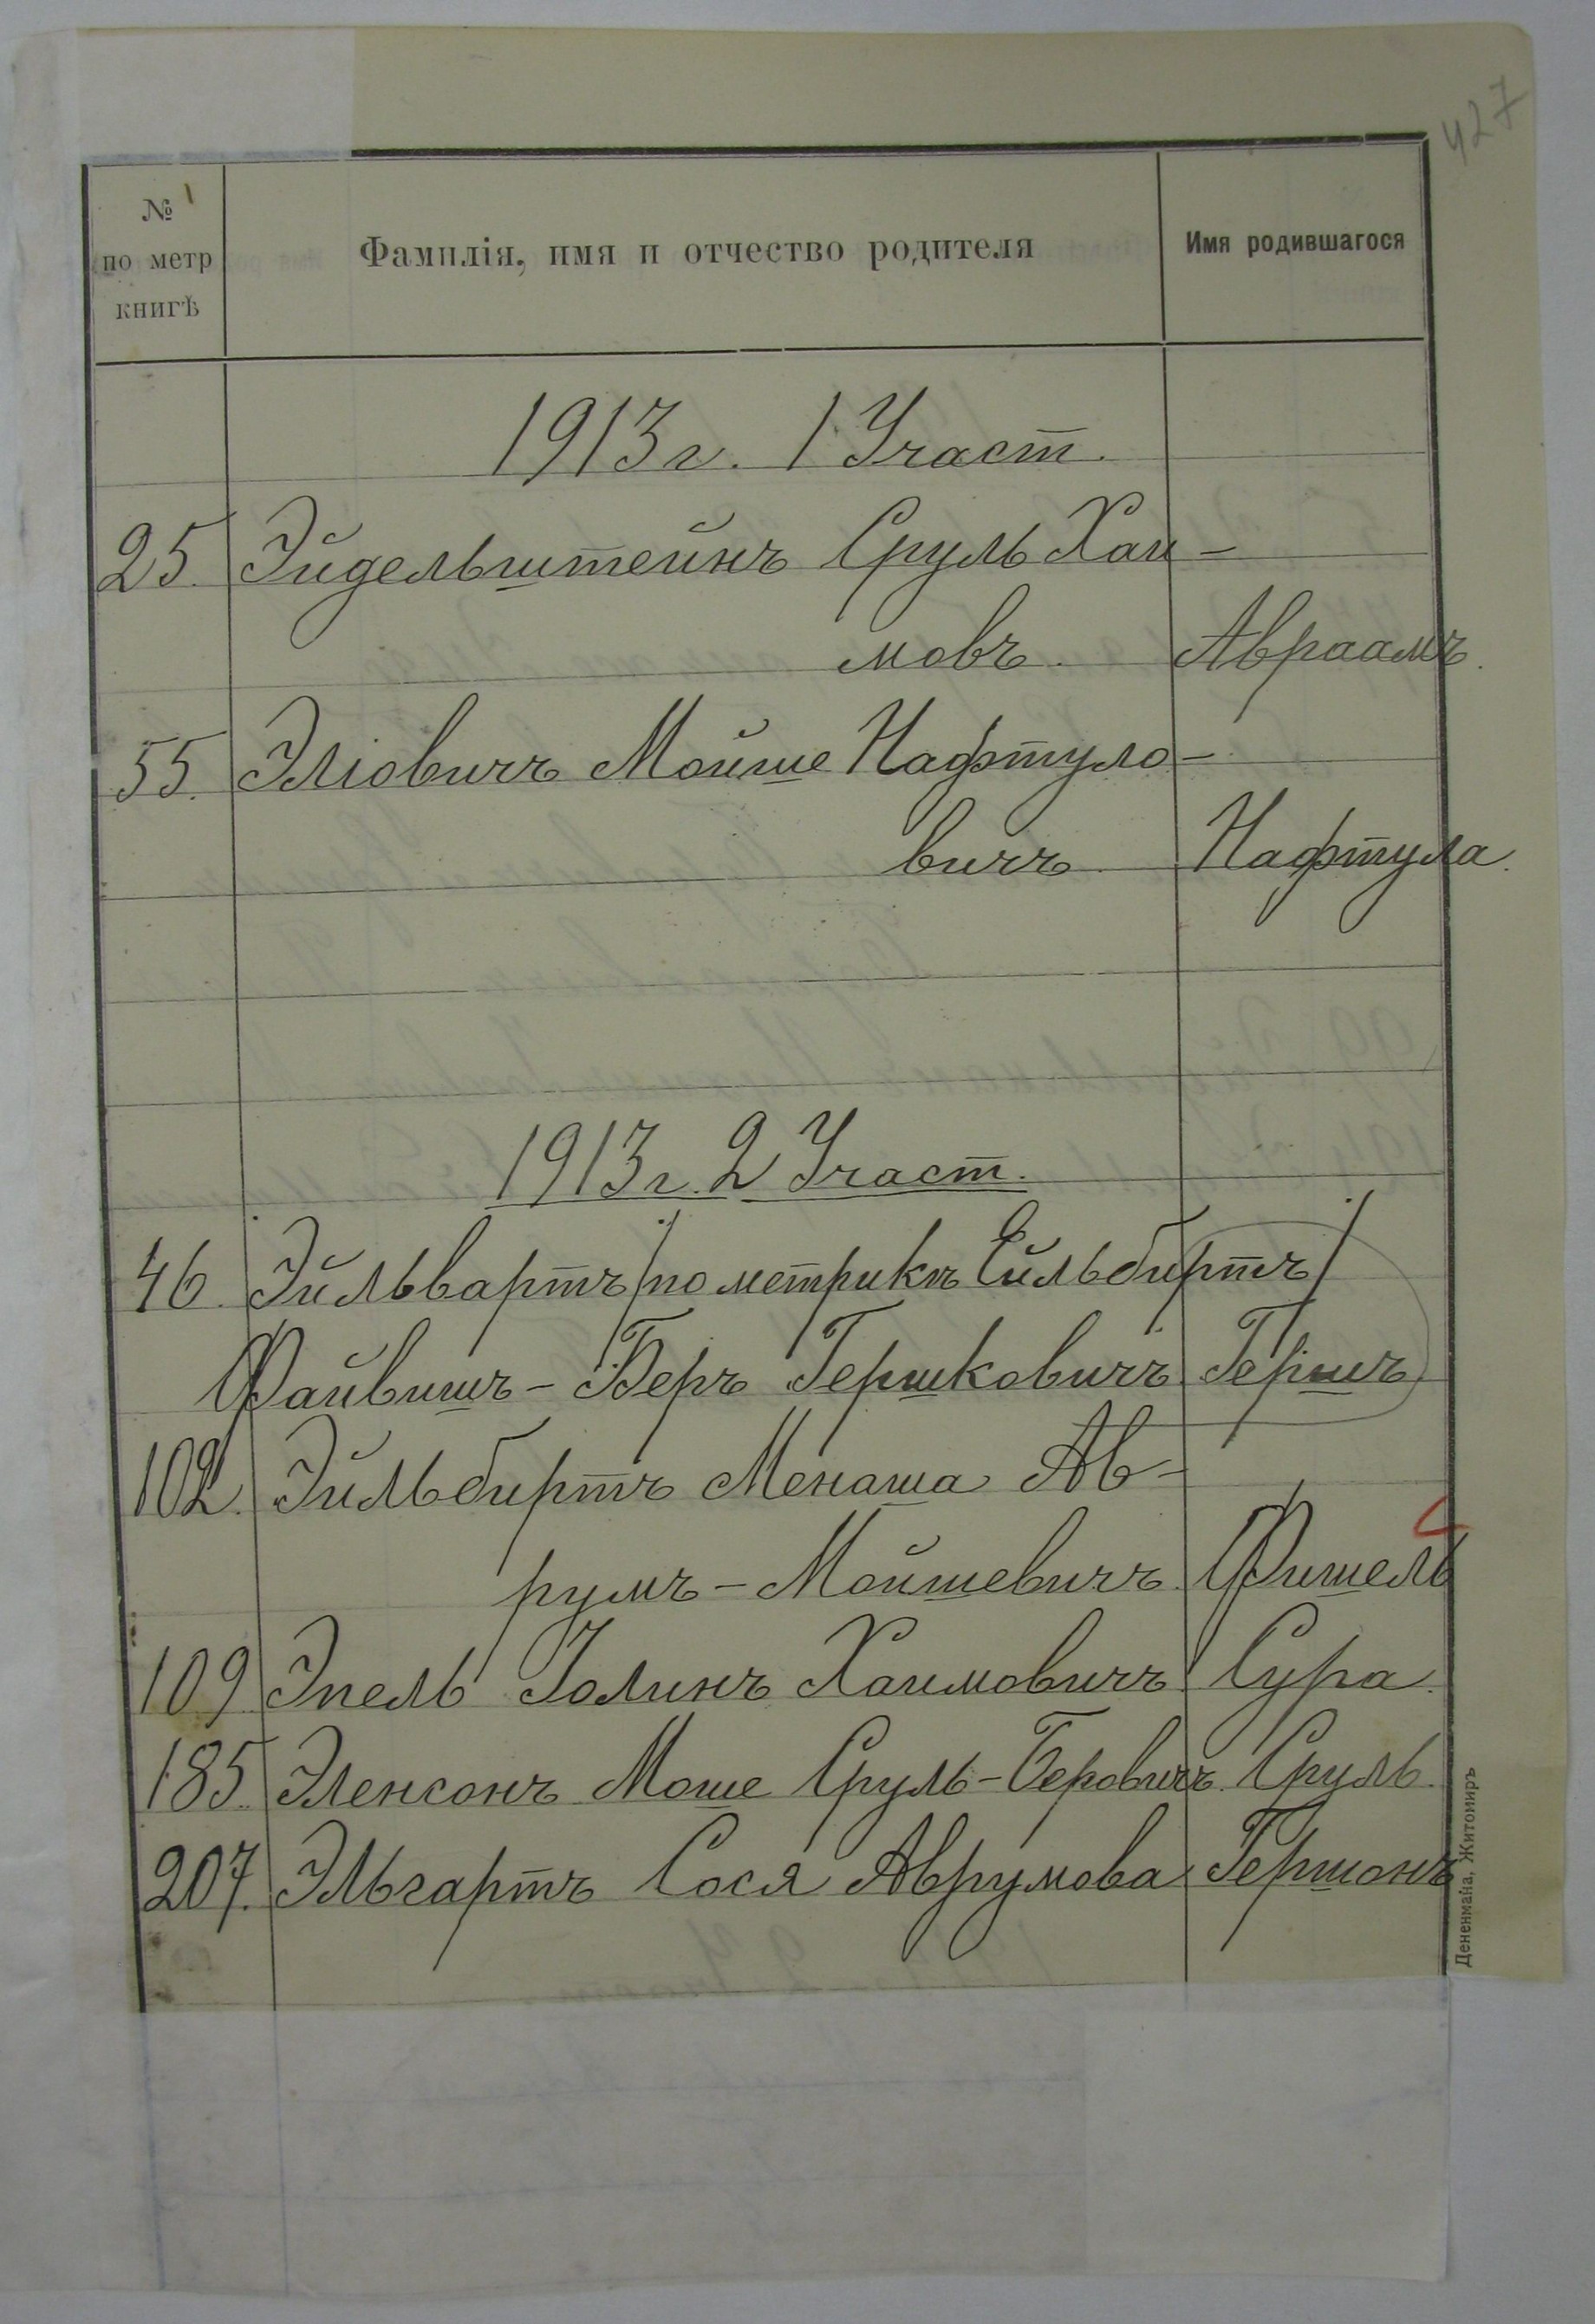 427
№
по метр
книгѣ
Фамилія, имя и отчество родителя
Имя родившагося
1913 г. 1 Участ.
25. Эйдельштейнъ Сруль Хаи-
мовъ. Авраамъ.
55. Эліовичъ Мойше Нафтуло-
вичъ Нафтула.
1913 г. 2 Участ.
46. Эйльвартъ /по метрикѣ Ейльбиртъ/
Файвишъ-Беръ Гершковичъ Гершъ
102. Эйльбиртъ Менаша Ав-
румъ-Мойшевичъ Фишель
109 Эпель Іолинъ Хаимовичъ Сура.
185. Эленсонъ Моше Сруль-Беровичъ. Сруль.
207. Эльгартъ Сося Аврумова Гершонъ
Дененмана, Житомиръ